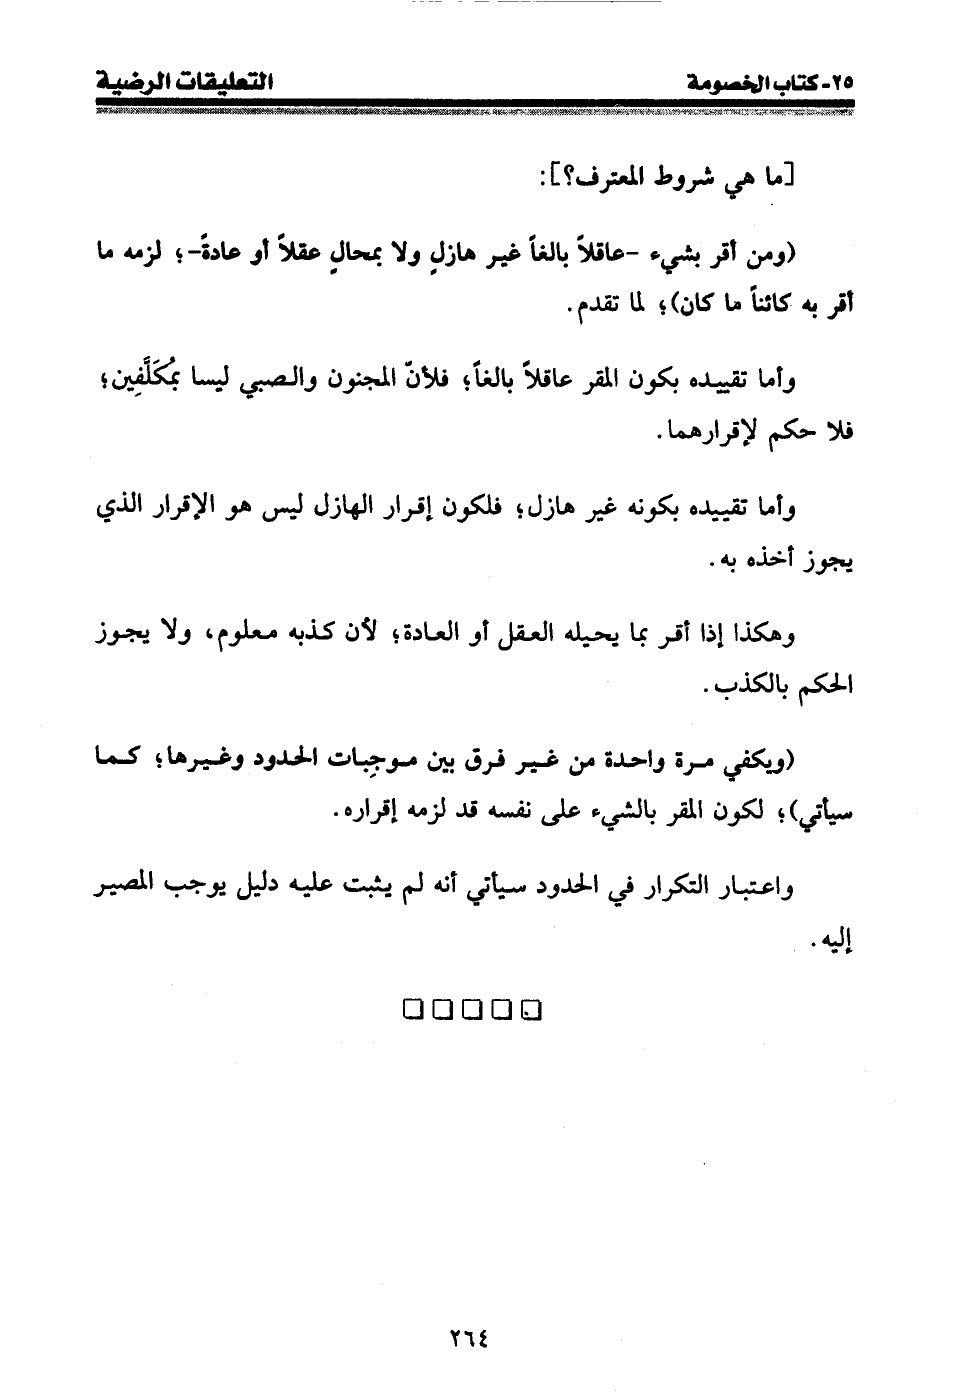 ٢٥-كتاب الخصومة
التعليقات الرضية
[ما هي شروط المعترف؟]:
(ومن أقر بشيء -عاقلاً بالغاً غير هازلٍ ولا بمحالٍ عقلاً أو عادةً-؛ لزمه ما
أقر به كائناً ما كان)؛ لما تقدم.
وأما تقييده بكون المقر عاقلاً بالغاً؛ فلأنّ المجنون والصبي ليسا بمُكَلَّفِين؛
فلا حكم لإقرارهما.
وأما تقييده بكونه غير هازل؛ فلكون إقرار الهازل ليس هو الإقرار الذي
يجوز أخذه به.
وهكذا إذا أقر بما يحيله العقل أو العادة؛ لأن كذبه معلوم، ولا يجوز
الحكم بالكذب.
(ويكفي مرة واحدة من غير فرق بين موجِبات الحدود وغيرها؛ كما
سيأتي)؛ لكون المقر بالشيء على نفسه قد لزمه إقراره.
واعتبار التكرار في الحدود سيأتي أنه لم يثبت عليه دليل يوجب المصير
إليه.
٢٦٤